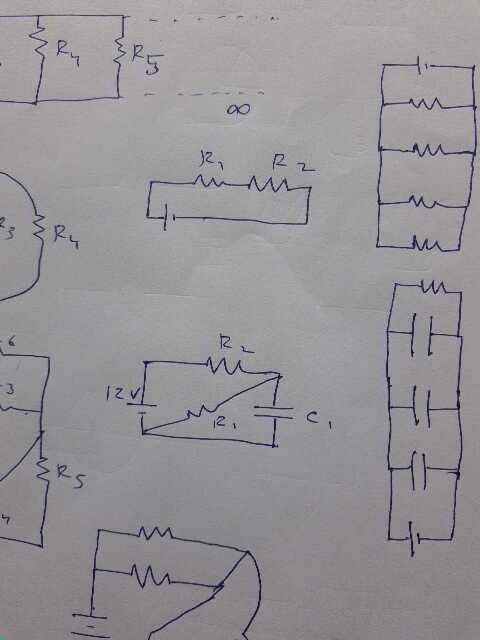 R4 R5
∞
R1 R2
R3 R4
R2
12V
R1 C1
6
3
R5
4